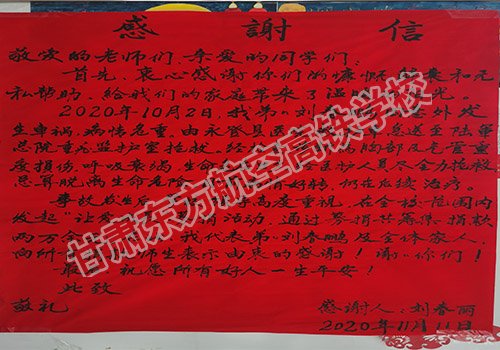 感謝信
敬爱的老师们、亲爱的同学们:
首先,衷心感谢你们的慷慨 和无
私帮助,给我们的家庭带来了温 光。
2020年10月2日,我弟 刘春 意外发
生车祸,病情危重。由永登县医 急送至陆军
总院重症监护室抢救。经 胸部及气管重
度损伤,呼吸衰竭,生命 医护人员尽全力抢救
总算脱离生命危险 有好转,仍在后续治疗。
事故发生后 高度重视,在全校范围内
发起"让爱 活动,通过 筹集捐款
两万 我代表弟 刘春鹏及全体家人,
向所 师生表示由衷的感谢!谢谢你们!
最 祝愿所有好人一生平安!
此致
敬礼
感谢人:刘春丽
2020年11月11日
甘肃东方航空高铁学校